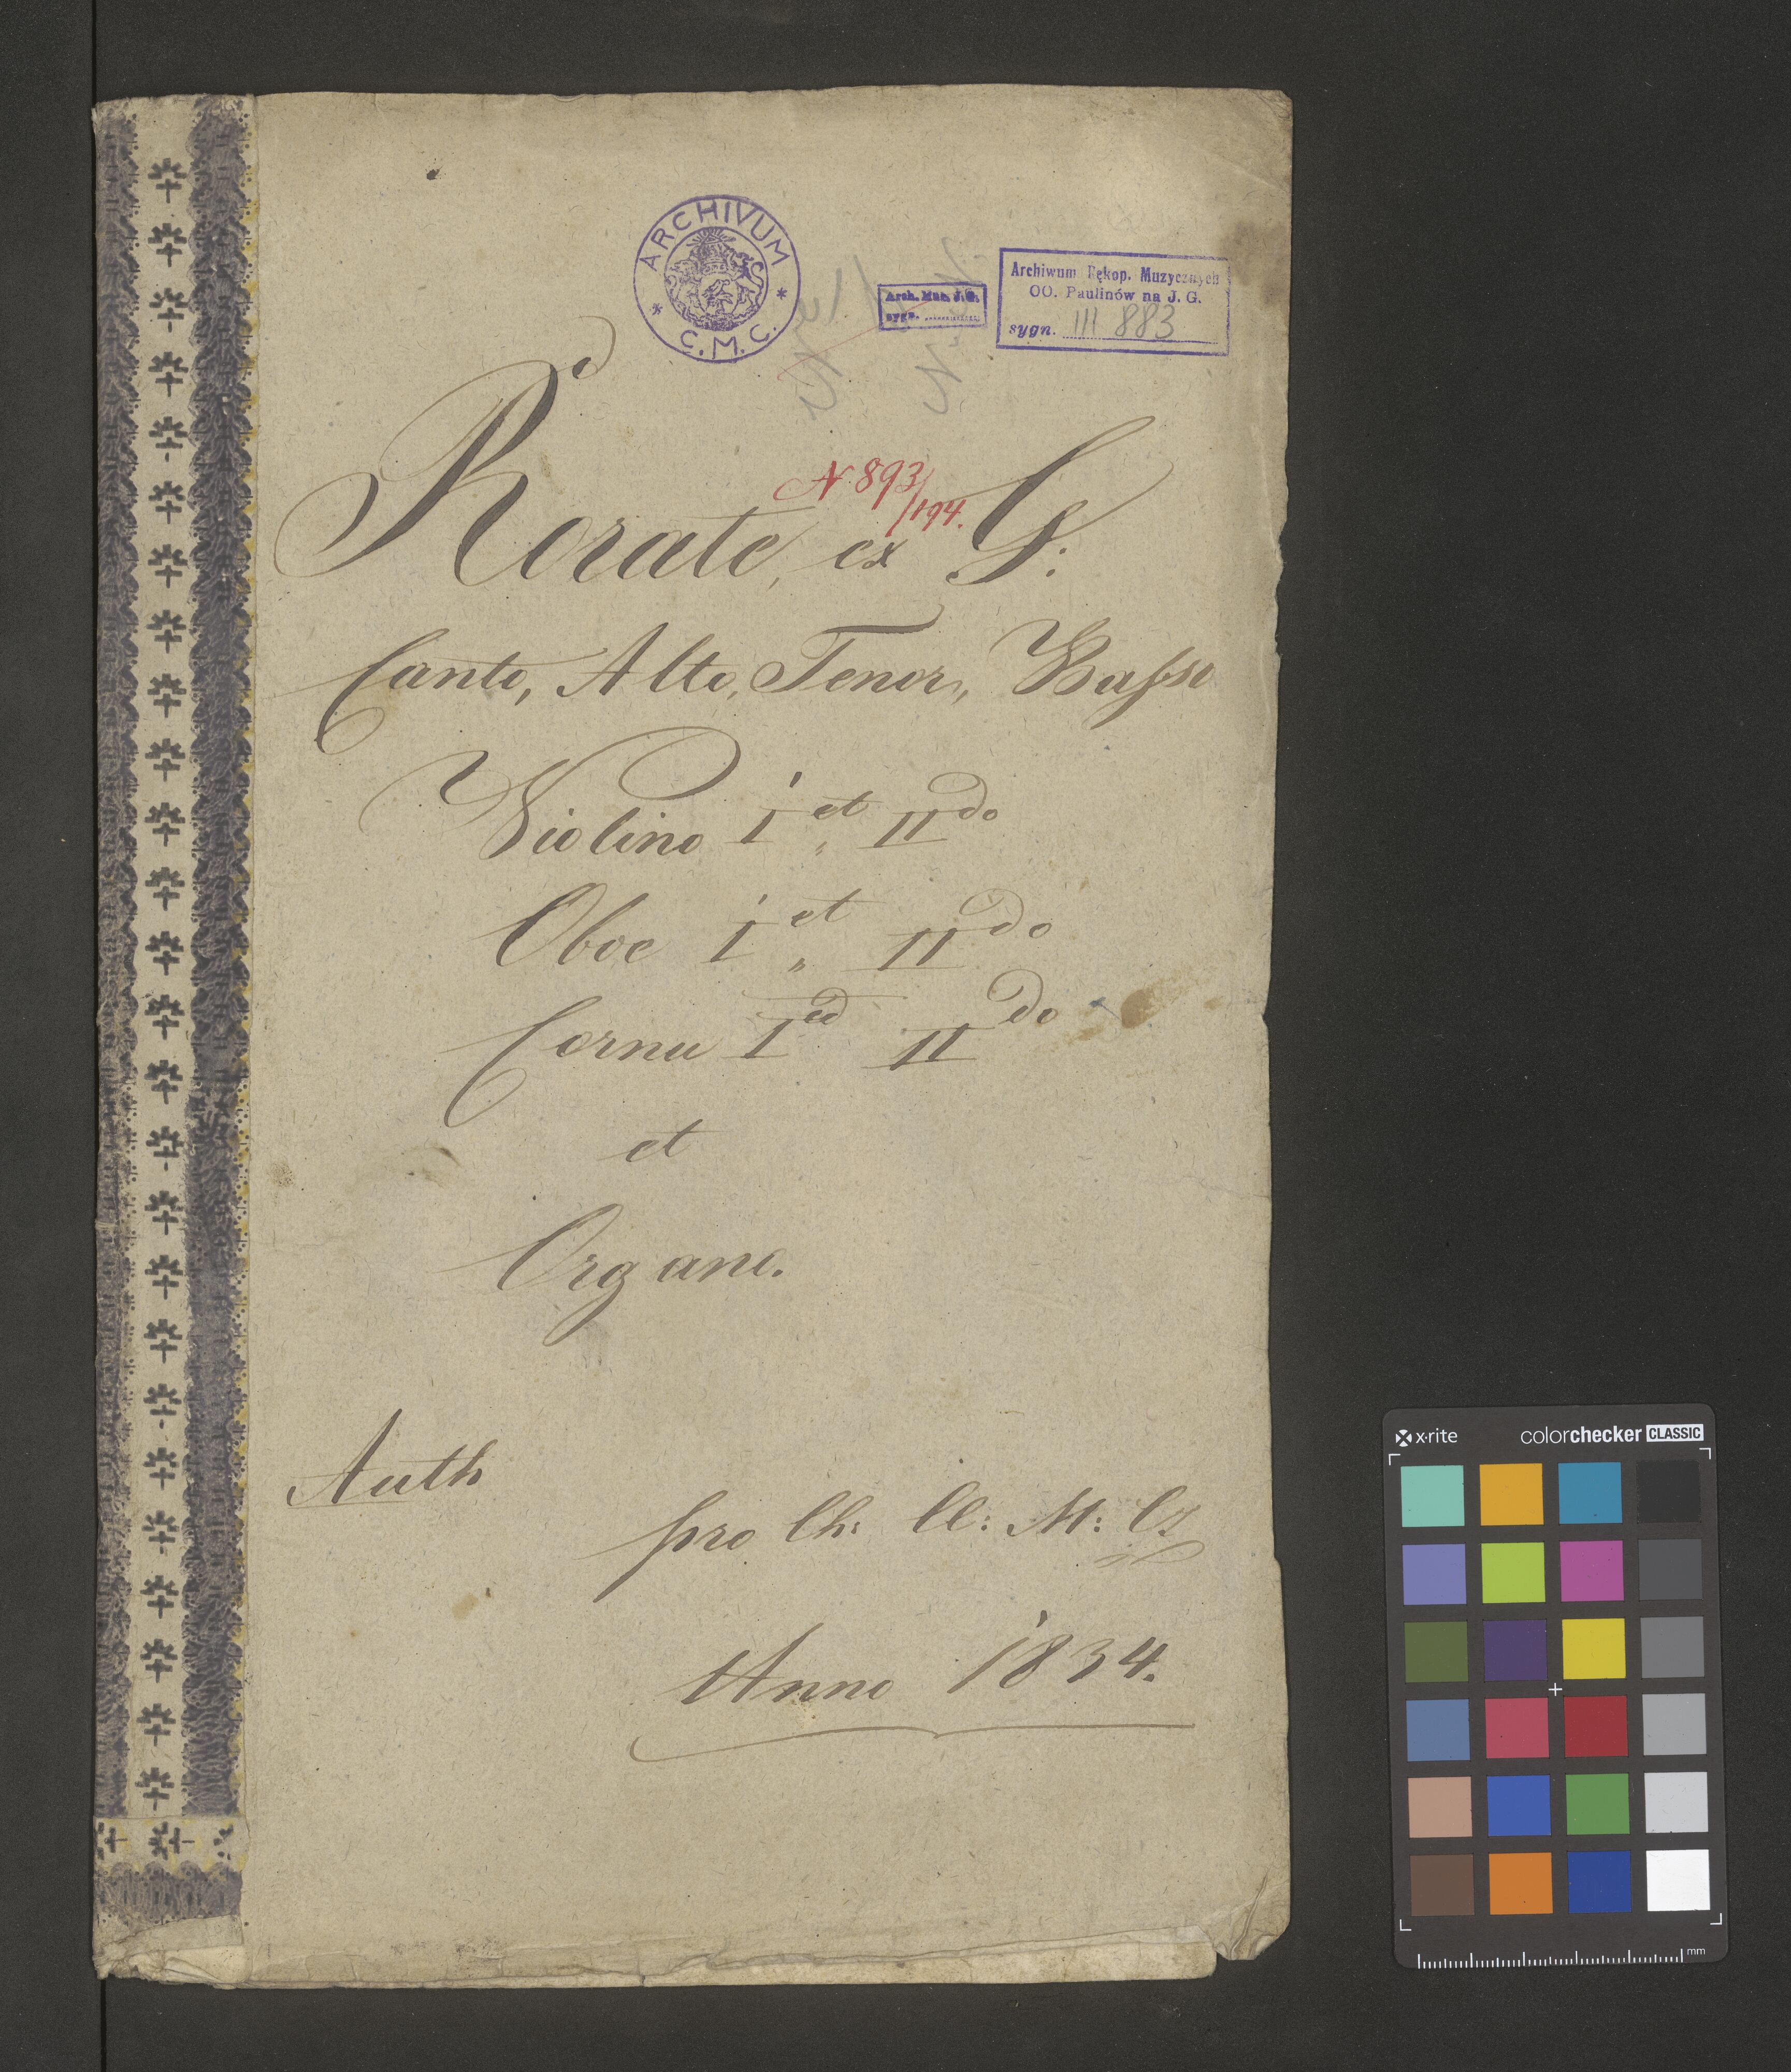 ARCHIVUM
C. M. C.
Arch. Muz. J. G.
sygn. ..............
Archiwum Rękop. Muzycznych
OO. Paulinów na J. G.
sygn. III 883
N 893/194.
Rorate, ex G:
Canto, Alto, Tenor, Basso
Violino I et II do
Oboe I et II do
Cornu I ed II do
et
Organo.
Auth
pro Ch: Cl: M: Cz
Anno 1834.
x·rite colorchecker CLASSIC
mm